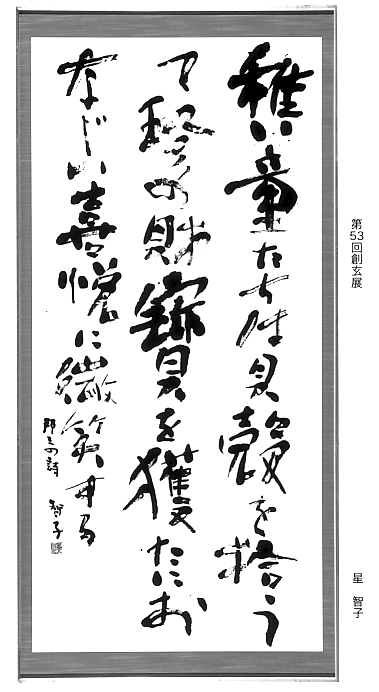 稚い童たちは貝殻を拾う
て の財寶を獲たにお
なじい喜悦に微笑する
の詩 智子
第53回創玄展
星 智子